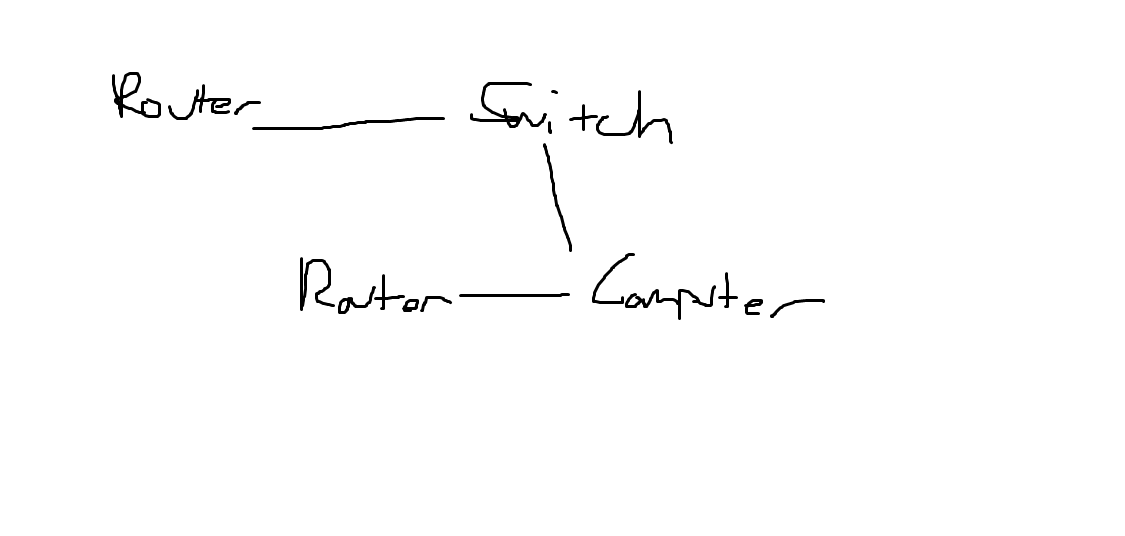 Router Switch
Router Computer